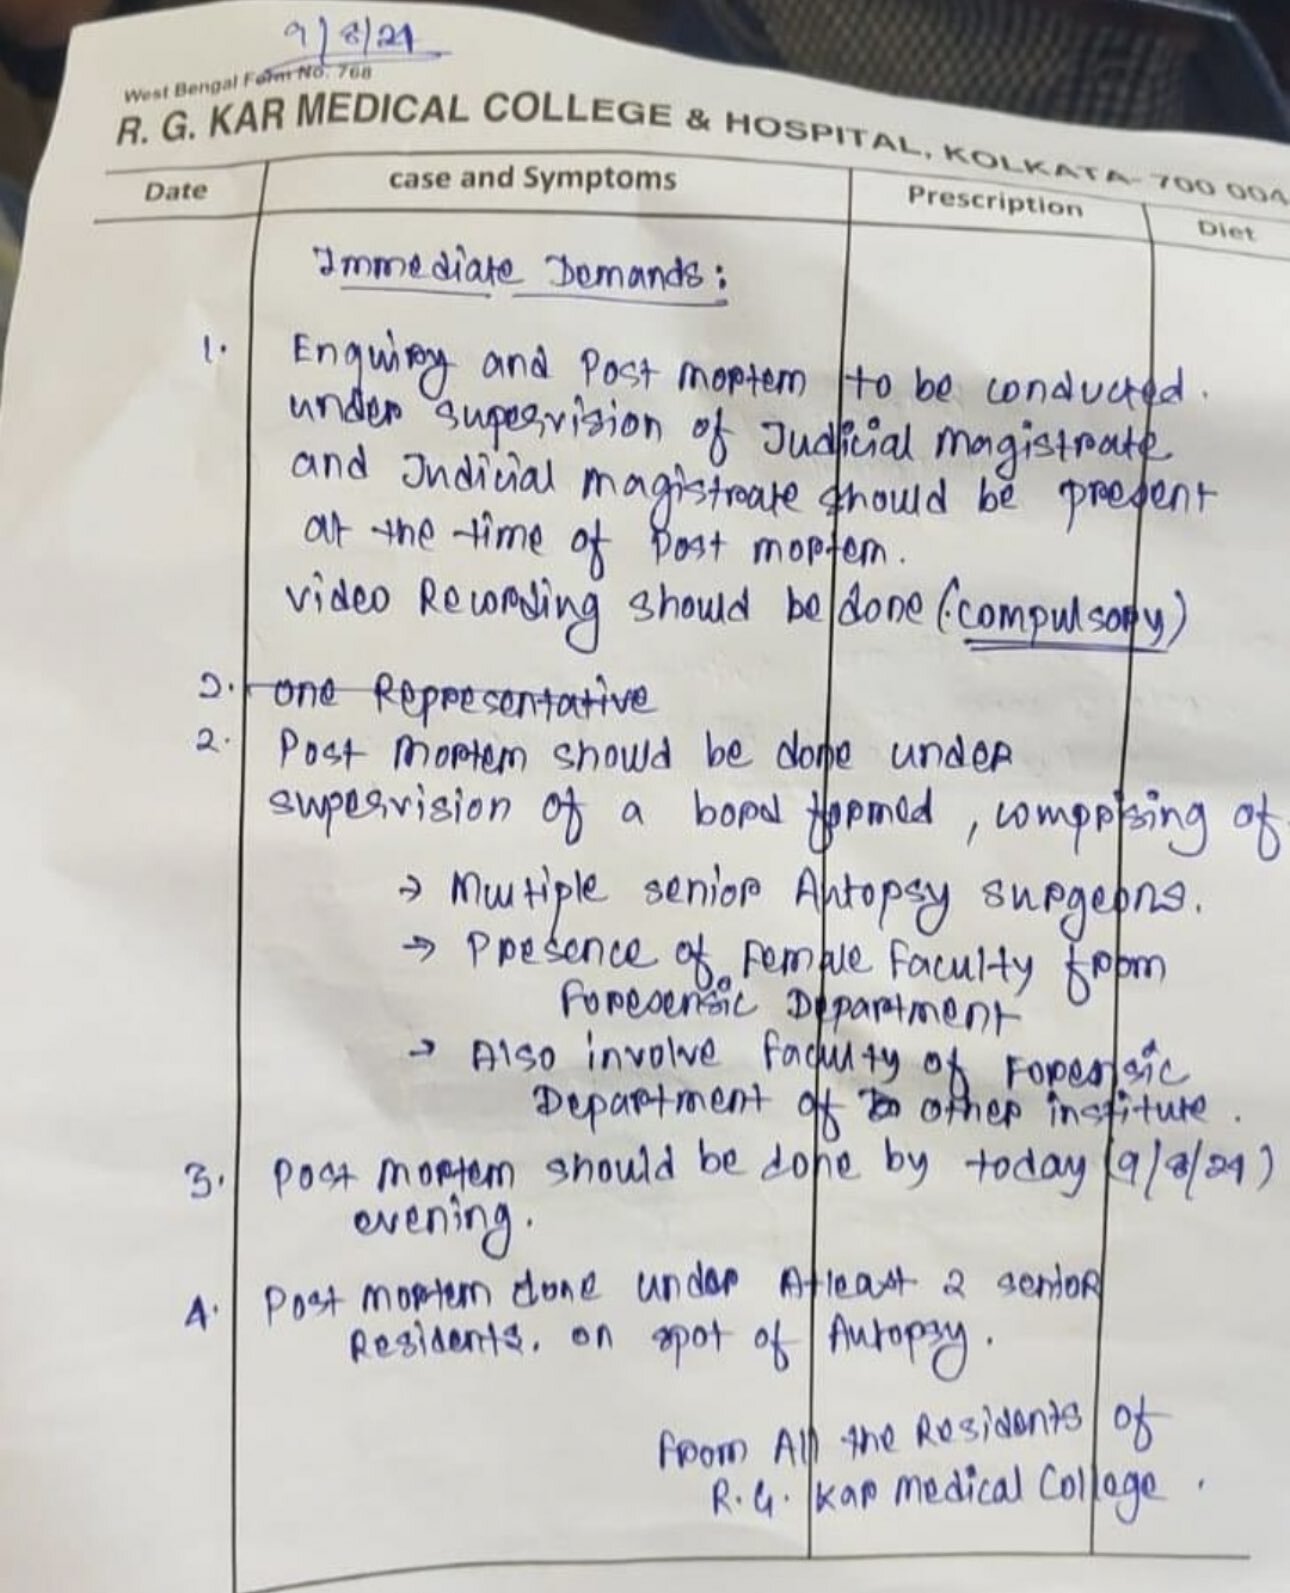 9/8/24
West Bengal Form No. 768
R. G. KAR MEDICAL COLLEGE & HOSPITAL, KOLKATA-700 004
Date case and Symptoms Prescription Diet
Immediate Demands:
1. Enquiry and Post mortem to be conducted.
under supervision of Judicial magistrate
and Judicial magistrate should be present
at the time of post mortem.
video Recording should be done (compulsory)
2. one Representative
2. Post mortem should be done under
supervision of a borad formed, comprising of
→ Multiple senior Autopsy surgeons.
→ Presence of Female Faculty from
Foresensic Department
→ Also involve faculty of Forensic
Department of other institute.
3. Post mortem should be done by today (9/8/24)
evening.
4. Post mortem done under Atleast 2 senior
Residents. on spot of Autopsy.
From All the Residents of
R.G. Kar Medical College.